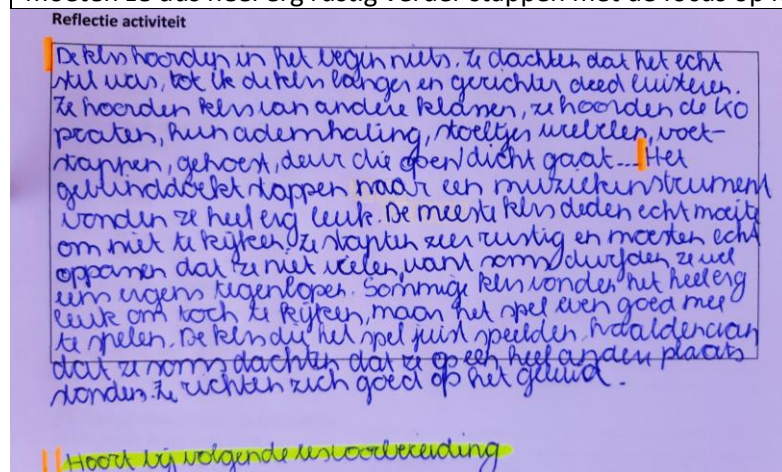 moeten ze dus heel erg rustig verder stappen met de focus op h
Reflectie activiteit
De klrs hoorden in het begin niets. Ze dachten dat het echt
stil was, tot ik de klrs langer en gerichter deed luisteren.
Ze hoorden klrs van andere klassen, ze hoorden de KO
praten, hun ademhaling, stoeltjes wiebelen, voet-
stappen, gehoest, deur die open/dicht gaat... Het
geblinddoekt stappen naar een muziekinstrument
vonden ze heel erg leuk. De meeste klrs deden echt moeite
om niet te kijken. Ze stapten zeer rustig en moesten echt
oppassen dat ze niet vielen, want soms durfden ze wel
eens ergens tegenlopen. Sommige klrs vonden het heel erg
leuk om toch te kijken, maar het spel even goed mee
te spelen. De klrs die het spel juist speelden, haalden aan
dat ze soms dachten dat ze op een heel andere plaats
stonden. Ze richten zich goed op het geluid.
Hoort bij volgende lesvoorbereiding